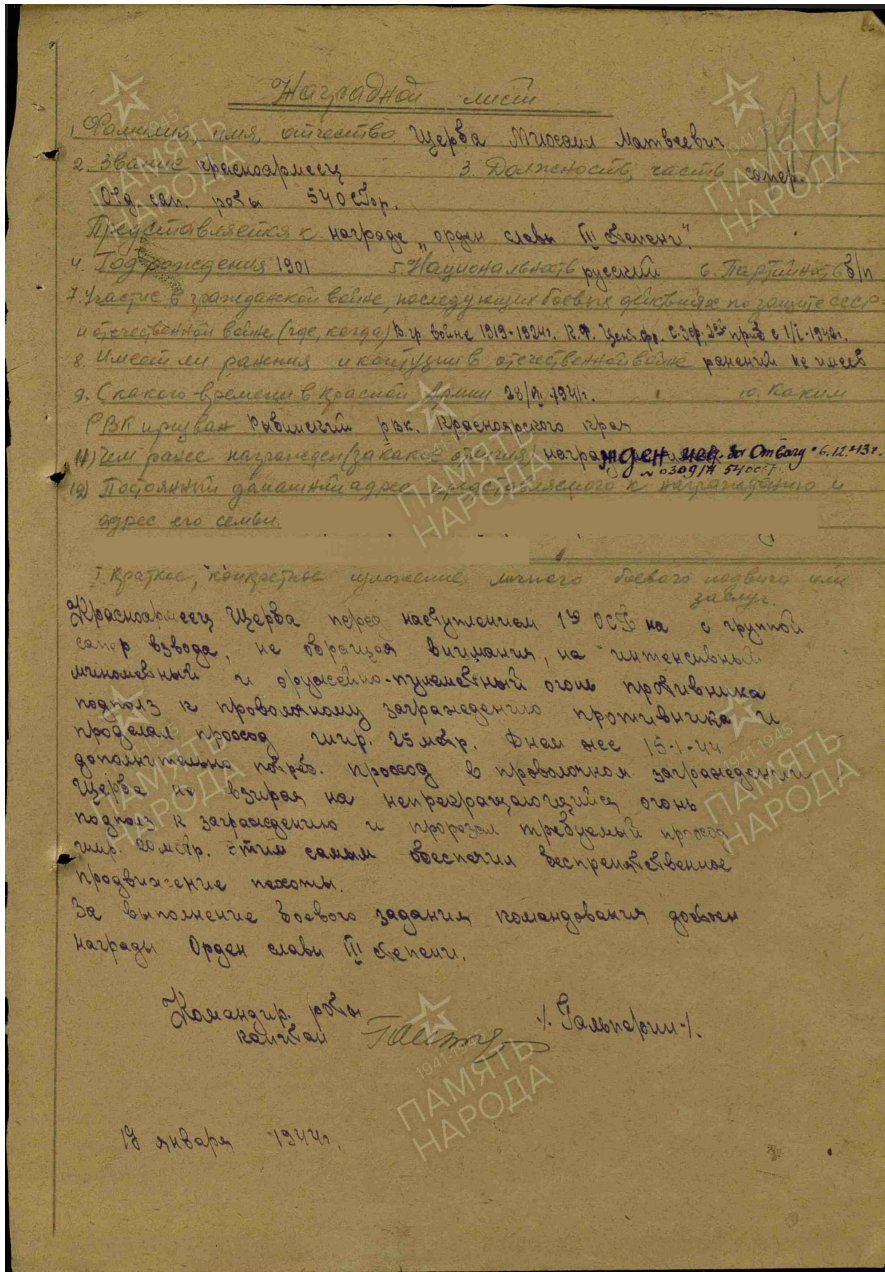 Наградной лист
197
1. Фамилия, имя, отчество Щерба Михаил Матвеевич
2. Звание красноармеец 3. Должность, часть сапер.
Отд. сап. роты 54 ОСбр.
Представляется к награде "орден славы III степени".
4. Год рождения 1901 5. Национальность русский 6. Партийность б/п
7. Участие в гражданской войне, последующих боевых действиях по защите СССР
и отечественной войне (где, когда) В гр. войне 1919-1924г. С.Зф. 2ой приб с 1942г.
8. Имеет ли ранения и контузии в отечественной войне ранений не имеет
9. С какого времени в Красной Армии 1941г. 10. Каким
РВК призван Рыбинский рвк. Красноярского края
11) Чем ранее награжден (за какие отличия) награжден мед. За Отвагу 6.12.43г.
12) Постоянный домашний адрес представляемого к награждению и
адрес его семьи.
I. Краткое, конкретное изложение личного боевого подвига или
заслуг.
Красноармеец Щерба перед наступлением 1го ОСБ на с группой
сапер взвода, не обращая внимания, на интенсивный
минометный и оружейно-пулеметный огонь противника
подполз к проволочному заграждению противника и
проделал проход шир. 25 метр. Днем же 15-1-44
дополнительно потреб. проход в проволочном заграждении
Щерба не взирая на непрекращающийся огонь
подполз к заграждению и прорезал требуемый проход
шир. 20 метр. Этим самым обеспечил беспрепятственное
продвижение пехоты.
За выполнение боевого задания командования достоен
награды Орден славы III степени.
Командир. роты
капитан /. Гальперин /.
января 1944г.
ПАМЯТЬ НАРОДА
1941-1945